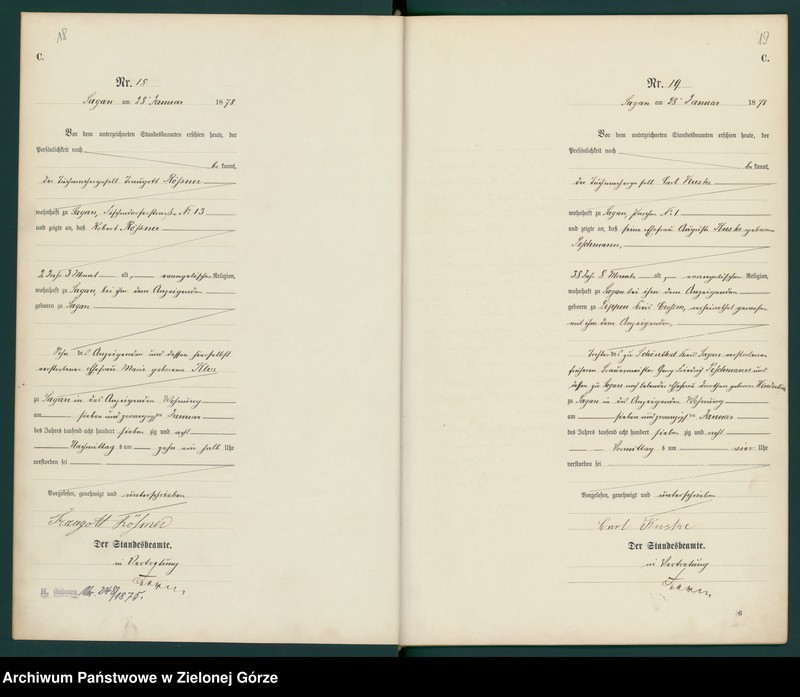 18
C.
Nr. 18
Sagan am 28 Januar 1878
Vor dem unterzeichneten Standesbeamten erschien heute, der
Persönlichkeit nach
be kannt,
der Tuchmachergesell Traugott Rößner
wohnhaft zu Sagan, N: 13
und zeigte an, daß Robert Rößner
2 Jahr 3 Monat alt, evangelischer Religion,
wohnhaft zu Sagan, bei ihm dem Anzeigenden
geboren zu Sagan
Sohn des Anzeigenden und dessen hierselbst
verstorbener Ehefrau Marie geborene
zu Sagan in des Anzeigenden Wohnung
am sieben und zwanzigsten Januar
des Jahres tausend acht hundert sieben zig und acht
Nachmittag s um zehn ein halb Uhr
verstorben sei
Vorgelesen, genehmigt und unterschrieben
Traugott Rößner
Der Standesbeamte.
in Vertretung
H. Geboren Nr. 248/1875.
19
C.
Nr. 19
Sagan am 28 Januar 1878
Vor dem unterzeichneten Standesbeamten erschien heute, der
Persönlichkeit nach
be kannt,
der Tuchmachergesell Carl Kuske
wohnhaft zu Sagan, N: 1
und zeigte an, daß seine Ehefrau Auguste Kuske geborene
Peschmann,
38 Jahr 8 Monate alt, evangelischer Religion,
wohnhaft zu Sagan bei ihm dem Anzeigenden
geboren zu Kreis Crossen, verheirathet gewesen
mit ihm dem Anzeigenden,
Tochter des zu Schönthal Kreis Sagan verstorbenen
Peschmann und
zu Sagan noch lebenden Ehefrau geborene
zu Sagan in des Anzeigenden Wohnung
am sieben und zwanzigsten Januar
des Jahres tausend acht hundert sieben zig und acht
Vormittag s um vier Uhr
verstorben sei
Vorgelesen, genehmigt und unterschrieben
Carl Kuske
Der Standesbeamte.
in Vertretung
6
Archiwum Państwowe w Zielonej Górze